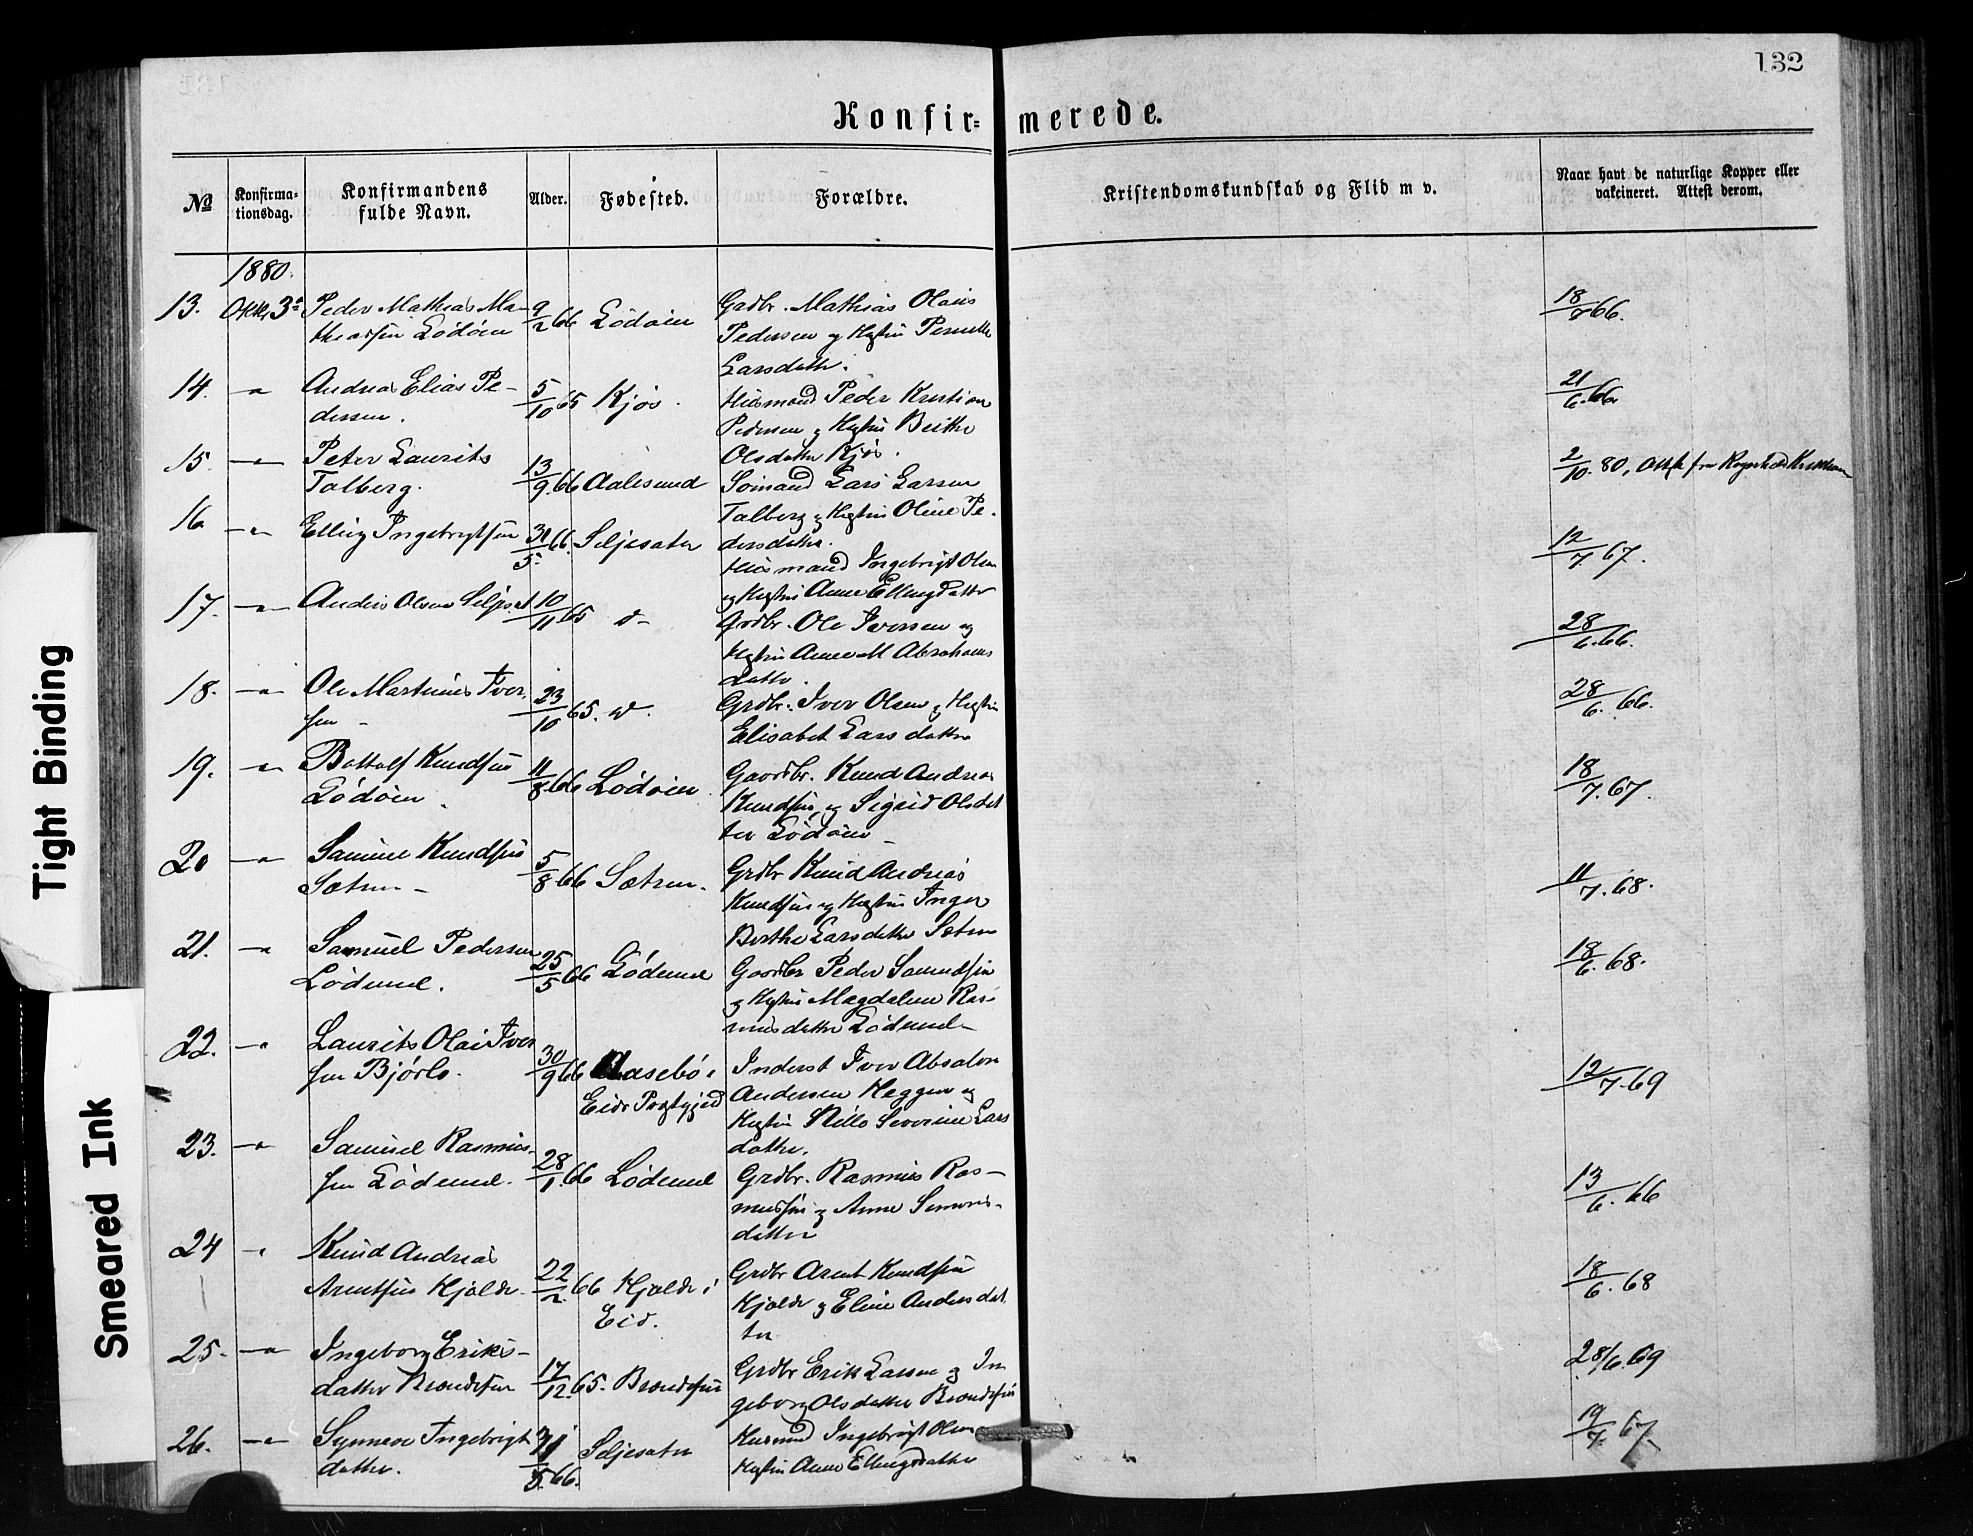 132
Konfir= merede.
№
Konfirma-
tionsdag.
Konfirmandens
fulde Navn.
Alder.
Fødested.
Forældre.
Kristendomskundskab og Flid m v.
Naar havt de naturlige Kopper eller
vakcineret. Attest derom.
1880.
13. Oktbr 3die Peder Mathias Ma-
thiassen Lödöen
9/2 66 Lödöen
Grdbr. Mathias Olaus
Pedersen og Hustru Pernille
Larsdatter.
18/7 66.
14. Andreas Elias Pe-
dersen.
5/10 65 Kjøs.
Husmand Peder Kristian
Pedersen og Hustru Berthe
Olsdatter Kjøs.
21/6. 66.
15. Peter Laurits
Talberg.
13/9. 66 Aalesund
Sömand Lars Larsen
Talberg og Hustru Oline Pe-
dersdatter.
2/10. 80, Attest fra
16. Elling Ingebrigtsen
31/5. 66. Seljesæter
Husmand Ingebrigt Olsen
og Hustru Anne Ellingsdatter
12/7. 67.
17. Anders Olsen Seljeset
10/11 65 d-
Grdbr. Ole Iversen og
Hustru Anne M Abrahams
datter.
28/6. 66.
18. Ole Martinus Iver-
sen -
23/10 65. d.
Grdbr. Iver Olsen og Hustru
Elisabet Larsdatter
28/6. 66.
19. Bottolf Knudsen
Lödöen.
11/8. 66 Lödöen.
Gaardbr. Knud Andreas
Knudsen og Sigrid Olsdat
ter Lödöen -
18/7. 67.
20 Samuel Knudsen
Sætren -
5/8. 66 Sætren.
Grdbr Knud Andreas
Knudsen og Hustru Inger
Berthe Larsdatter Sætren
11/7. 68.
21. Samuel Pedersen
Lödemel.
25/5 66 Lödemel
Gaardbr Peder Samuelsen
og Hustru Magdalene Ras-
musdatter Lödemel -
18/6. 68.
22. Laurits Olai Iver
sen Bjørlo.
30/9 66 Aasebö i
Eids Prstgjed
Inderst Iver Absalon
Andersen Heggen og
Hustru Sille Severine Lars
datter.
12/7. 69
23. Samuel Rasmus-
sen Lödemel.
28/1. 66 Lödemel
Grdbr. Rasmus Ras-
mussen og Anne Simons-
datter
13/6. 66
24 Knud Andreas
Arentsen Hjelde.
22/2. 66 Hjelde i
Eid.
Grdbr Arent Knudsen
Hjelde og Eline Andersdat
ter
18/6. 68
25. Ingeborg Eriks-
datter Brandsøen
17/12. 65. Brandsøen
Grdbr Erik Larsen og In
geborg Olsdatter Brandsøen
28/6. 69
26. Synneve Ingebrigt
datter.
31/5. 66. Seljesæter
Husmd Ingebrigt Olsen
Hustru Anne Ellingsdatter
19/7. 67
Tight Binding
Smeared Ink